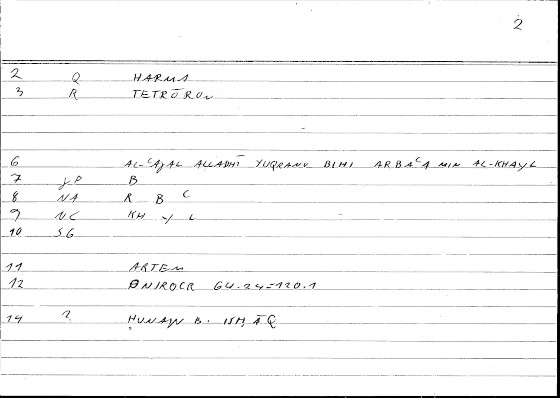 2
2 Q HARMA
3 R TETRŌRON
6 AL-ᶜAJAL ALLADHĪ YUQRANU BIHI ARBAᶜA MIN AL-KHAYL
7 JP B
8 NA R B C
9 NC KH Y L
10 SG
11 ARTEM
12 ONIROCR 64.24=120.1
14 ? ḤUNAJN B. ISḤĀQ